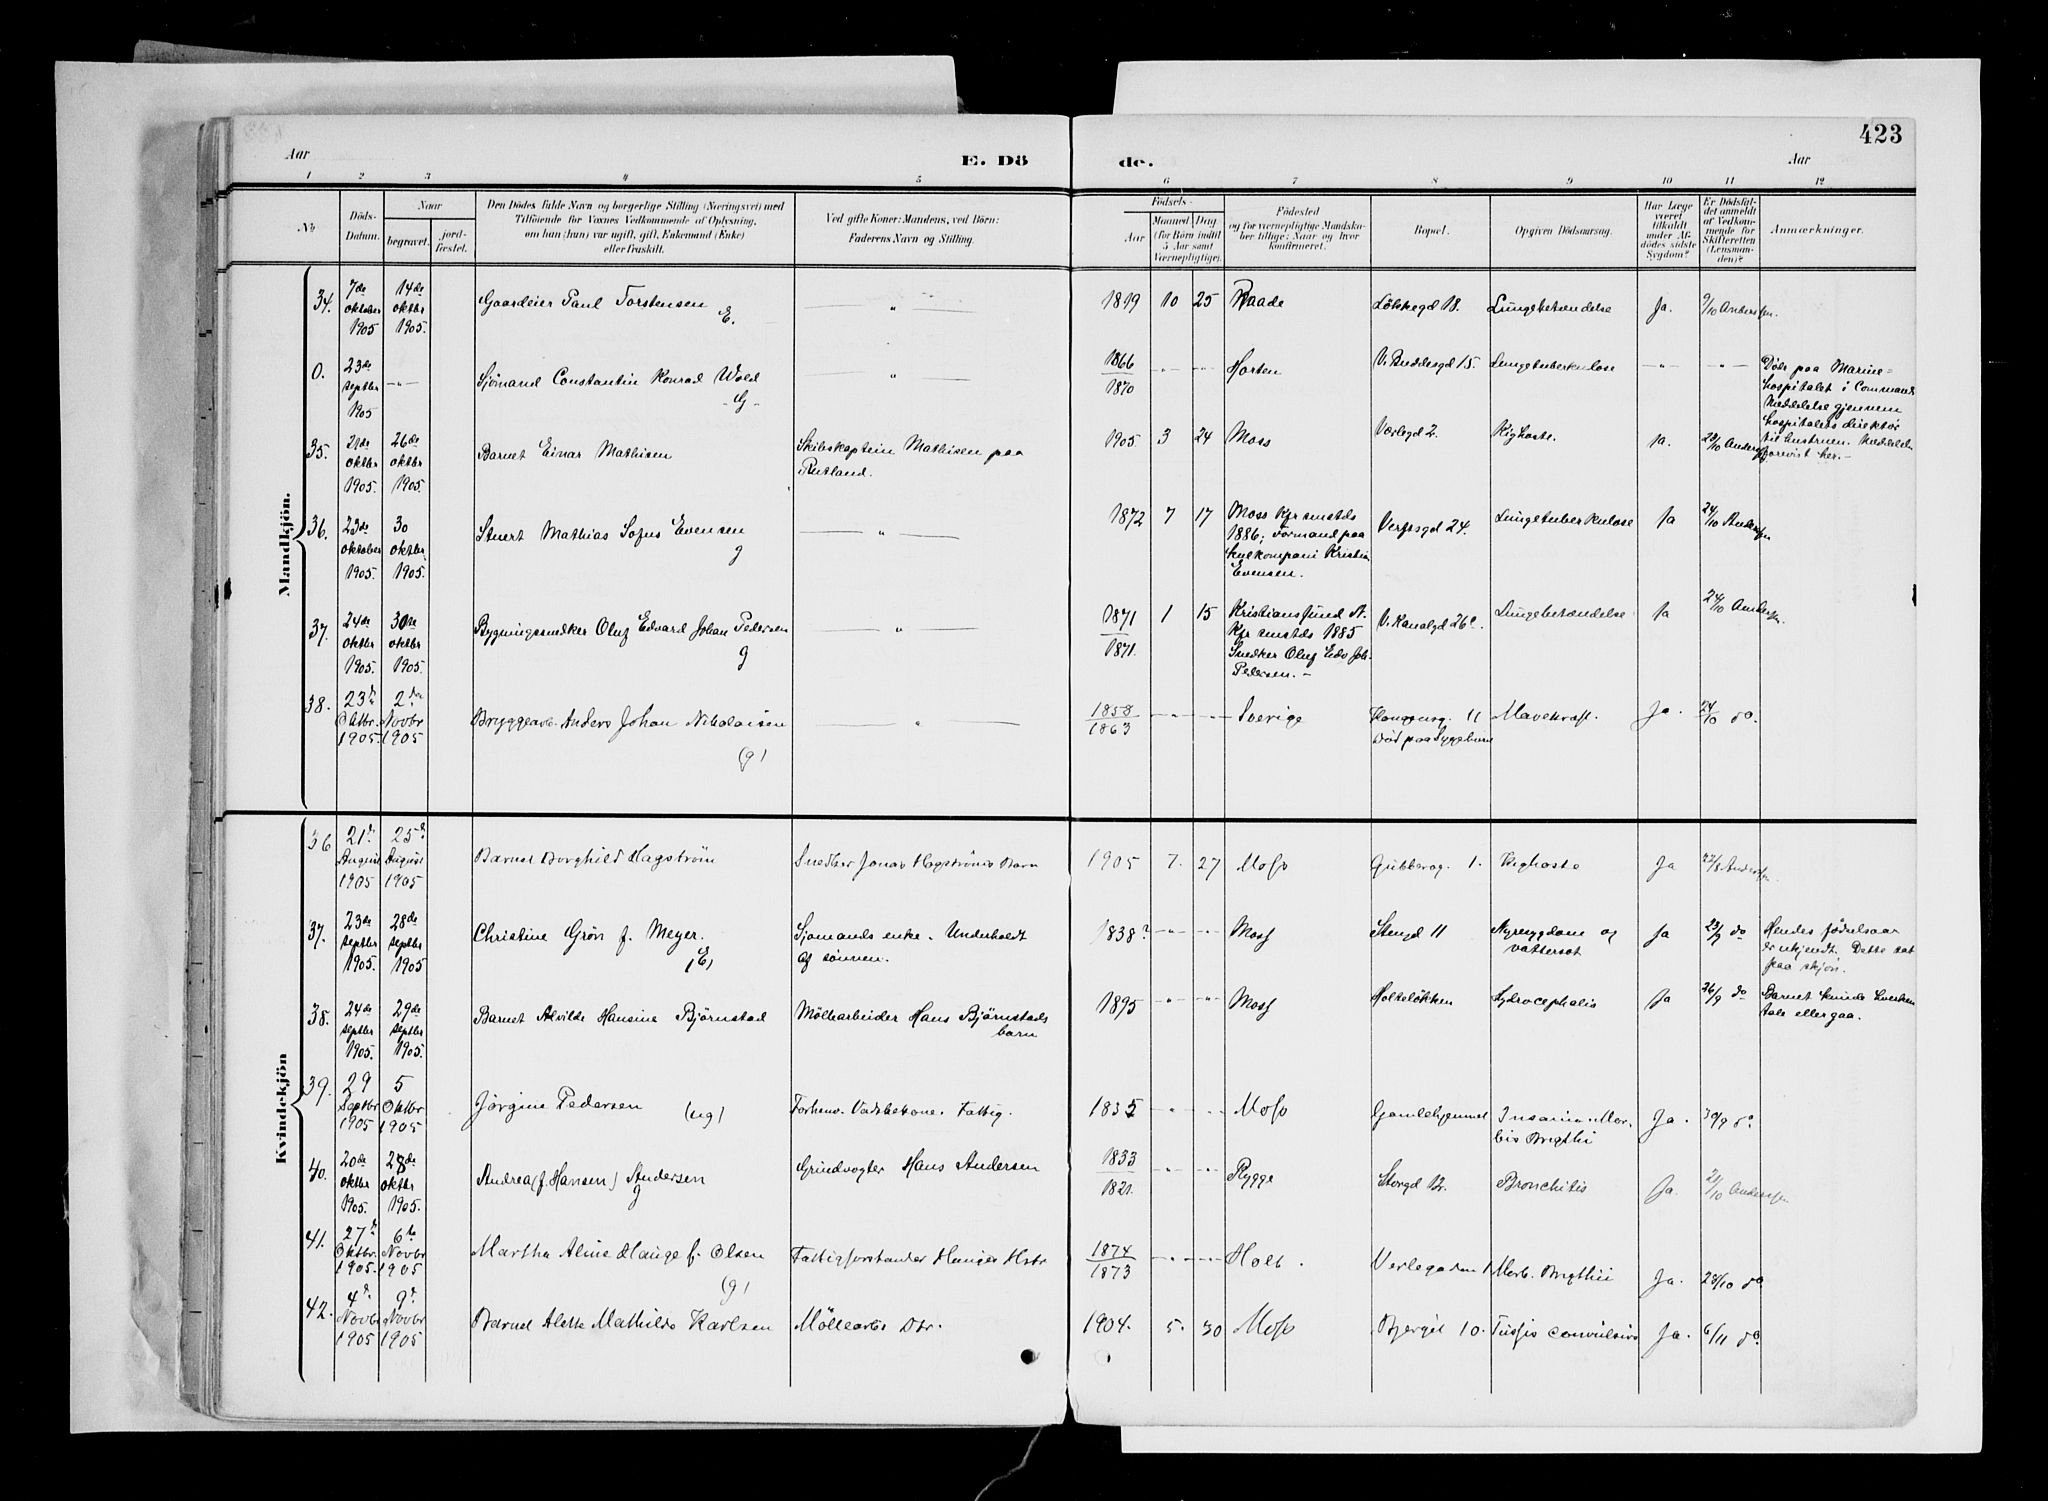 423
Aar
E. Dö
de.
Aar
1 2 3 4 5 6 7 8 9 10 11 12
No
Döds-
Datum.
Naar
begravet.
jord-
fæstet.
Den Dödes fulde Navn og borgerlige Stilling (Næringsvei) med
Tilföiende for Voxnes Vedkommende af Oplysning,
om han (hun) var ugift, gift, Enkemand (Enke)
eller fraskilt.
Ved gifte Koner: Mandens, ved Börn:
Faderens Navn og Stilling.
Födsels-
Aar
Maaned
Dag
(for Börn indtil
5 Aar samt
Værnepligtige).
Födested
og for værnepligtige Mandska-
ber tillige: Naar og hvor
konfirmeret.
Bopæl.
Opgiven Dödsaarsag.
Har Læge
været
tilkaldt
under Af-
dödes sidste
Sygdom?
Er Dödsfal-
det anmeldt
af Vedkom-
mende for
Skifteretten
(Lensman-
den)?
Anmærkninger.
Mandkjön.
34.
7de
oktober
1905
14de
oktbr
1905.
Gaardeier Paul Torstensen
E.
1819 10 25 Raade
Lökkegd 18.
Lungebetændelse
Ja.
9/10 Anderssen.
0.
23de
septbr
1905
Sjömand Constantin Konrad Wold
-G-
1866
1870
Horten
V. Buddesgd 15.
Lungetuberkulose
Döde paa Marine=
hospitalet i
Meddelse gjennem
hospitalets direktör
til hustruen. Meddelelsen
forevist her.-
35.
21de
oktbr
1905.
26de
oktbr
1905.
Barnet Einar Mathisen
Skibskaptein Mathisen paa
Rutland.
1905 3 24 Moss
Værlegd 2.
Kighoste.
Ja.
23/10 Anderssen
36.
23de
oktober
1905.
30
oktbr.
1905.
Stuert Mathias Sofus Evensen
g
1872 7 17
Moss Kfr smstds
1886; Formand paa
Kulkompani Kristian
Evensen.
Verftsgd 24.
Lungetuberkulose
Ja
24/10 Anderssen
37.
24de
oktbr
1905.
30te
oktbr
1905.
Bygningssnedker Oluf Edvard Johan Pedersen
g
1871
1871.
1 15
Kristiansund N.
Kfr smstds 1885
Snedker Oluf Edv Joh.
Pedersen.-
V. Kanalgd 26
Lungebetændelse
Ja
24/10 Anderssen.
38.
23de
Oktbr.
1905.
2den
Novbr
1905
Bryggearb. Anders Johan Nikolaisen
(g)
1858
1863
Sverige
Kongensg. 11
Död paa Sygehuset
Mavekraft.
Ja.
24/10 do.
Kvindekjön
36
21de
August
1905
25de
August
1905
Barnet Borghild Hagström
Snedker Jonas Hagströms Barn
1905 7. 27 Moss
Gubberog. 1.
Kighoste
Ja
22/8 Anderssen.
37.
23de
septbr
1905.
28de
septbr
1905.
Christine Grön f. Meyer.
(E)
Sjömands enke. Underholdt
af sönnen.
1838? Moss
Stengd 11
Nyresygdom og
vattersot
Ja
23/9 do
Hendes födselsaar
er ukjendt. Dette sat
paa skjön.
38.
24de
septbr
1905.
29de
septbr
1905.
Barnet Alvilde Hansine Björnstad
Möllearbeider Hans Björnstads
barn
1895 Moss
Holtelökken
Hydrocephalis
Ja
26/9 do
Barnet kunde hverken
tale eller gaa.
39.
29
Septbr
1905
5
Oktbr
1905
Jörgine Pedersen (ug)
Forhenv. Vadskekone. Fattig.
1835 Moss
Gamlehjemmet
Insania. Mor-
bis Brigthi
Ja.
30/9 do
40.
20de
oktbr
1905.
28de
oktbr
1905.
Andrea (f. Hansen) Andersen
g
Grindvogter Hans Andersen
1833
1821.
Rygge
Storgd 12.
Bronchitis
Ja.
21/10 Anderssen
41.
27de
Oktbr.
1905.
6te
Novbr
1905
Martha Aline Hauge f. Olsen
(g)
Fattigforstander Hauges Hstr
1874
1873
Holt.
Verlegaden 1
Morb. Brigthii
Ja.
28/10 do
42.
4de
Novbr
1905
9de
Novbr
1905
Barnet Alette Mathilde Karlsen
Möllearbs Dtr.
1904. 5. 30 Moss
Bjerget 10.
Tussis convulsiva
Ja.
6/11 do.